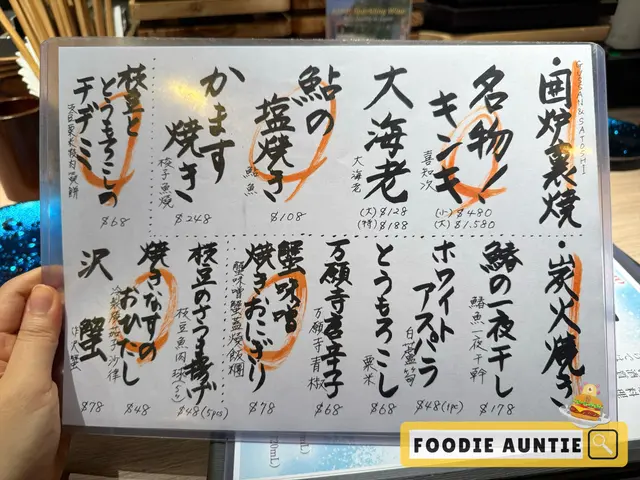 ・囲炉裏焼
& SATOSHI
名物!
キンキ
喜知次
(小) $480
(大) $1,580
大海老
大海老
(大) $128
(特) $188
鮎の
塩焼き
鮎魚
$108
かます
焼き
梭子魚燒
$248
枝豆と
とうもろこしの
チヂミ
$68
・炭火焼き
鯵の一夜干し
$178
ホワイト
アスパラ
白蘆筍
$48(1pc)
とうもろこし
粟米
$68
万願寺唐辛子
万願寺青椒
$68
蟹味噌
焼きおにぎり
$78
枝豆のさつま揚げ
枝豆魚肉球
$48(5pcs)
焼きなすの
おひたし
$48
沢蟹
炸沢蟹
$78
FOODIE AUNTIE